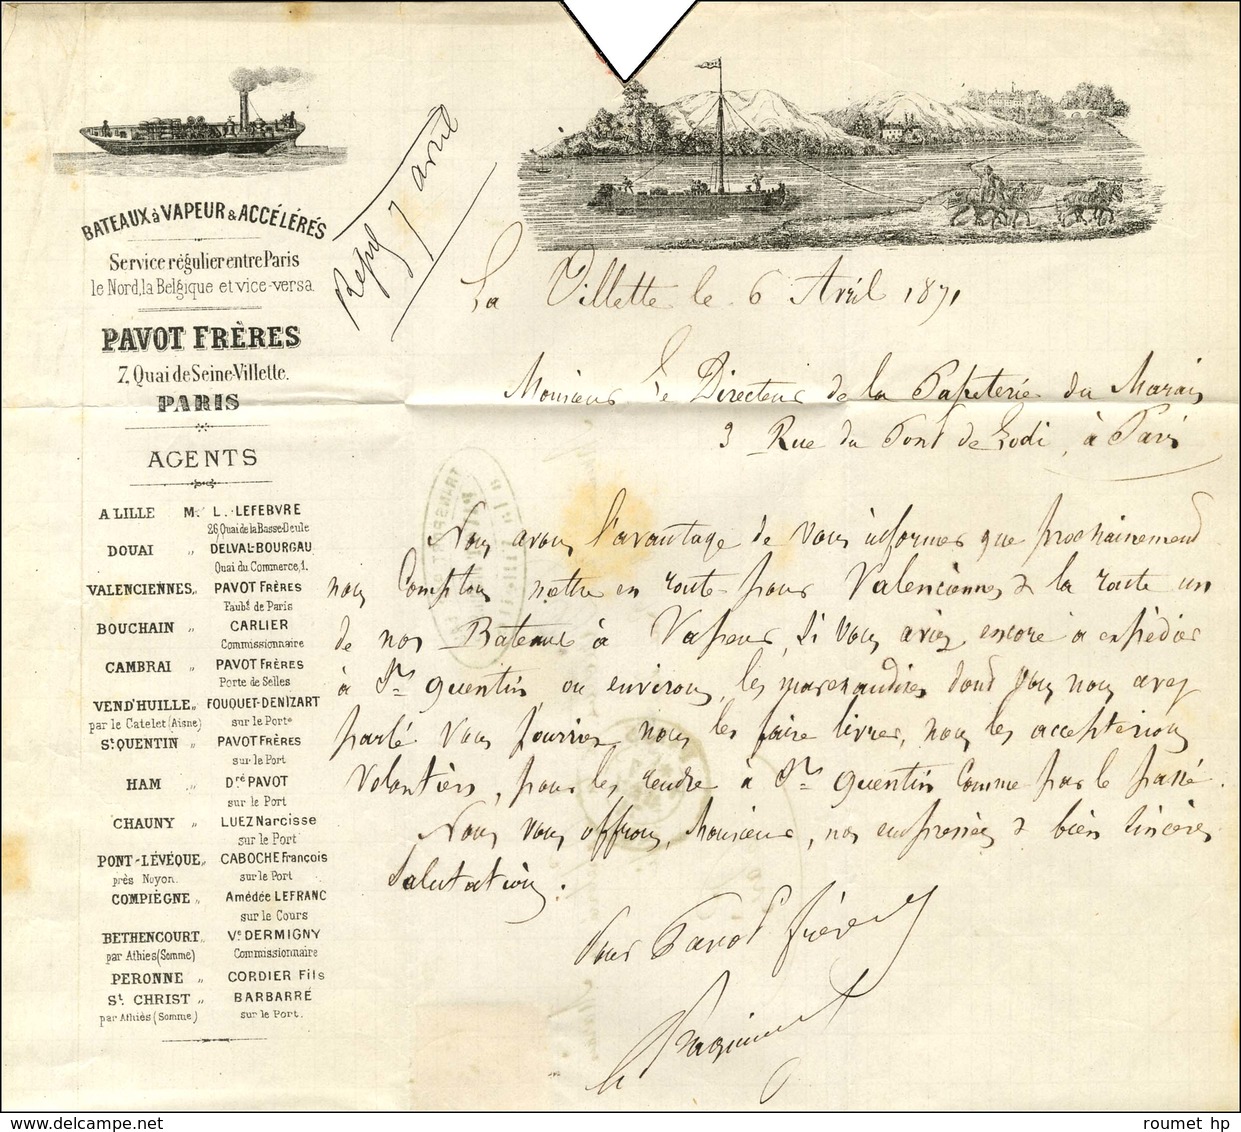 BATEAUX à VAPEUR & ACCÉLÉRÉS
Service régulier entre Paris
le Nord, la Belgique et vice-versa.
PAVOT FRÈRES
7, Quai de Seine-Villette.
PARIS
AGENTS
A LILLE M. L. LEFEBVRE
26, Quai de la Basse-Deule
DOUAI „ DELVAL-BOURGAU
Quai du Commerce, 1.
VALENCIENNES „ PAVOT FRÈRES
Faubg de Paris
BOUCHAIN „ CARLIER
Commissionnaire
CAMBRAI „ PAVOT FRÈRES
Porte de Selles
VEND'HUILLE „ FOUQUET-DENIZART
par le Catelet (Aisne) sur le Porte
St QUENTIN „ PAVOT FRÈRES
sur le Port
HAM „ Dré PAVOT
sur le Port
CHAUNY „ LUEZ Narcisse
sur le Port
PONT-LÉVÊQUE „ CABOCHE François
près Noyon. sur le Port
COMPIÈGNE „ Amédée LEFRANC
sur le Cours
BETHENCOURT „ Ve DERMIGNY
par Athies (Somme) Commissionnaire
PERONNE „ CORDIER Fils
St CHRIST „ BARBARRÉ
par Athiès (Somme) sur le Port.
7 avril
La Villette le 6 Avril 1871
Monsieur le Directeur de la Papeterie du Marais
3 Rue du Pont de Lodi, à Paris
Nous avons l'avantage de vous informer que prochainement
nous comptons mettre en route pour Valenciennes & la route un
de nos Bateaux à Vapeur, Si vous aviez encore à expédier
à St Quentin ou environs, les marchandises dont vous nous avez
parlé vous pourriez nous les faire livrer, nous les accepterions
volontiers, pour les rendre à St Quentin comme par le passé.
Nous vous offrons, Monsieur, nos empressées & bien sincères
Salutations.
Pour Pavot frères
roumet hp